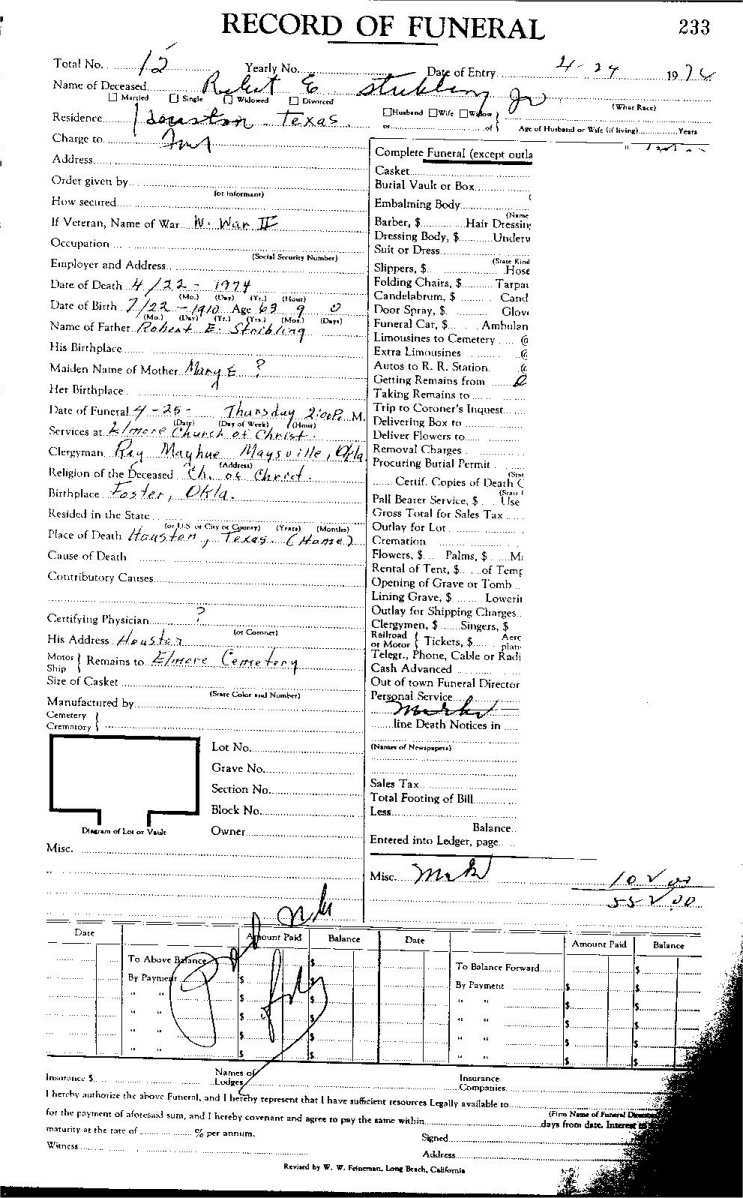 RECORD OF FUNERAL
233
Total No. 12 Yearly No. Date of Entry 4-24 1974
Name of Deceased Robert E Stribling Jr
Married Single Widowed Divorced (What Race)
Residence Houston Texas. Husband Wife Widow or of Age of Husband or Wife (if living) Years
Charge to
Address
Order given by
(or Informant)
How secured
If Veteran, Name of War W. War II
Occupation
(Social Security Number)
Employer and Address
Date of Death 4/22-1974
(Mo.) (Day) (Yr.) (Hour)
Date of Birth 7/22-1910 Age 63 9 0
(Mo.) (Day) (Yr.) (Yrs.) (Mos.) (Days)
Name of Father Robert E. Stribling
His Birthplace
Maiden Name of Mother Mary E ?
Her Birthplace
Date of Funeral 4-25- Thursday 2:00 P. M.
(Date) (Day of Week) (Hour)
Services at Elmore Church of Christ.
Clergyman Ray Mayhue Maysville, Okla
(Address)
Religion of the Deceased Ch. of Christ.
Birthplace Foster, Okla.
Resided in the State
(or U.S. or City or County) (Years) (Months)
Place of Death Houston, Texas. (Home)
Cause of Death
Contributory Causes
Certifying Physician ?
(or Coroner)
His Address Houston
Motor Ship } Remains to Elmore Cemetery
Size of Casket
(State Color and Number)
Manufactured by
Cemetery
Crematory
Lot No.
Grave No.
Section No.
Block No.
Diagram of Lot or Vault
Owner
Misc.
Complete Funeral (except outla
Casket
Burial Vault or Box
Embalming Body
(Name
Barber, $ Hair Dressing
Dressing Body, $ Underw
Suit or Dress
(State Kind
Slippers, $ Hose
Folding Chairs, $ Tarpau
Candelabrum, $ Cand
Door Spray, $ Glove
Funeral Car, $ Ambulan
Limousines to Cemetery @
Extra Limousines @
Autos to R. R. Station @
Getting Remains from
Taking Remains to
Trip to Coroner's Inquest
Delivering Box to
Deliver Flowers to
Removal Charges
Procuring Burial Permit
(Stat
Certif. Copies of Death C
(State
Pall Bearer Service, $ Use
Gross Total for Sales Tax
Outlay for Lot
Cremation
Flowers, $ Palms, $ Ma
Rental of Tent, $ of Temp
Opening of Grave or Tomb
Lining Grave, $ Lowerin
Outlay for Shipping Charges
Clergymen, $ Singers, $
Railroad or Motor { Tickets, $ Aero plan
Telegr., Phone, Cable or Radi
Cash Advanced
Out of town Funeral Director
Personal Service
line Death Notices in
(Names of Newspapers)
Sales Tax
Total Footing of Bill
Less
Balance
Entered into Ledger, page
Misc.
Date Amount Paid Balance Date Amount Paid Balance
To Above Balance $ To Balance Forward $
By Payment $ $ By Payment $ $
" " $ $ " " $ $
" " $ $ " " $ $
" " $ $ " " $ $
" " $ $ " " $ $
Paid
Insurance $ Names of Lodges Insurance Companies
I hereby authorize the above Funeral, and I hereby represent that I have sufficient resources Legally available to
(Firm Name of Funeral Director
for the payment of aforesaid sum, and I hereby covenant and agree to pay the same within days from date. Interest
maturity at the rate of % per annum. Signed
Witness Address
Revised by W. W. Feineman, Long Beach, California